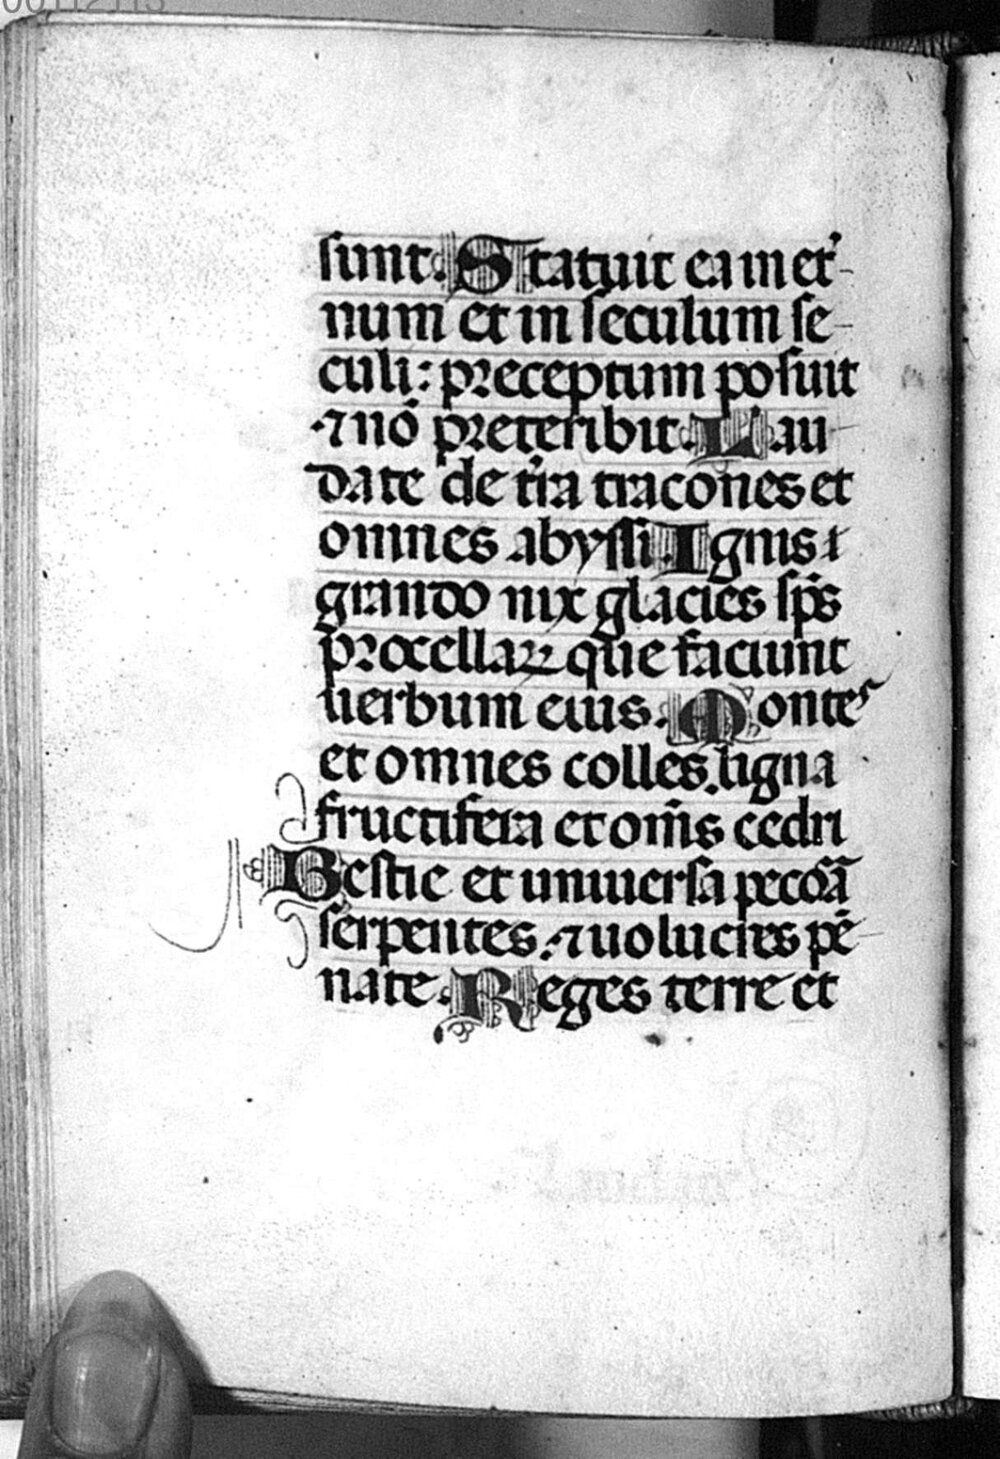 00112113
sunt. Statuit ea in et̾-
num et in seculum se-
culi: preceptum posuit
⁊ nō preteribit. Lau-
date de t̾ra tracones et
omnes abyssi. Ignis ⁊
grando nix glacies sp̄s
procellaꝝ que faciunt
uerbum eius. Montes
et omnes colles. ligna
fructifera et om̄s cedri
Bestie et uniuersa pecora
serpentes. ⁊ uolucres pē-
nate. Reges terre et